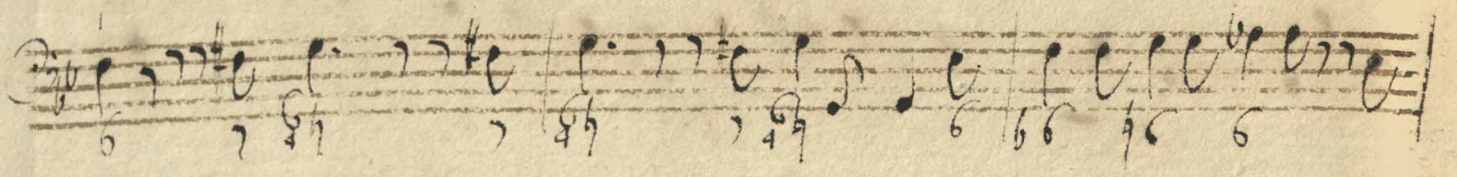 6 7 6 4 ♮ 7 6 4 ♮ 7 6 4 ♮ 6 ♭6 ♮6 6